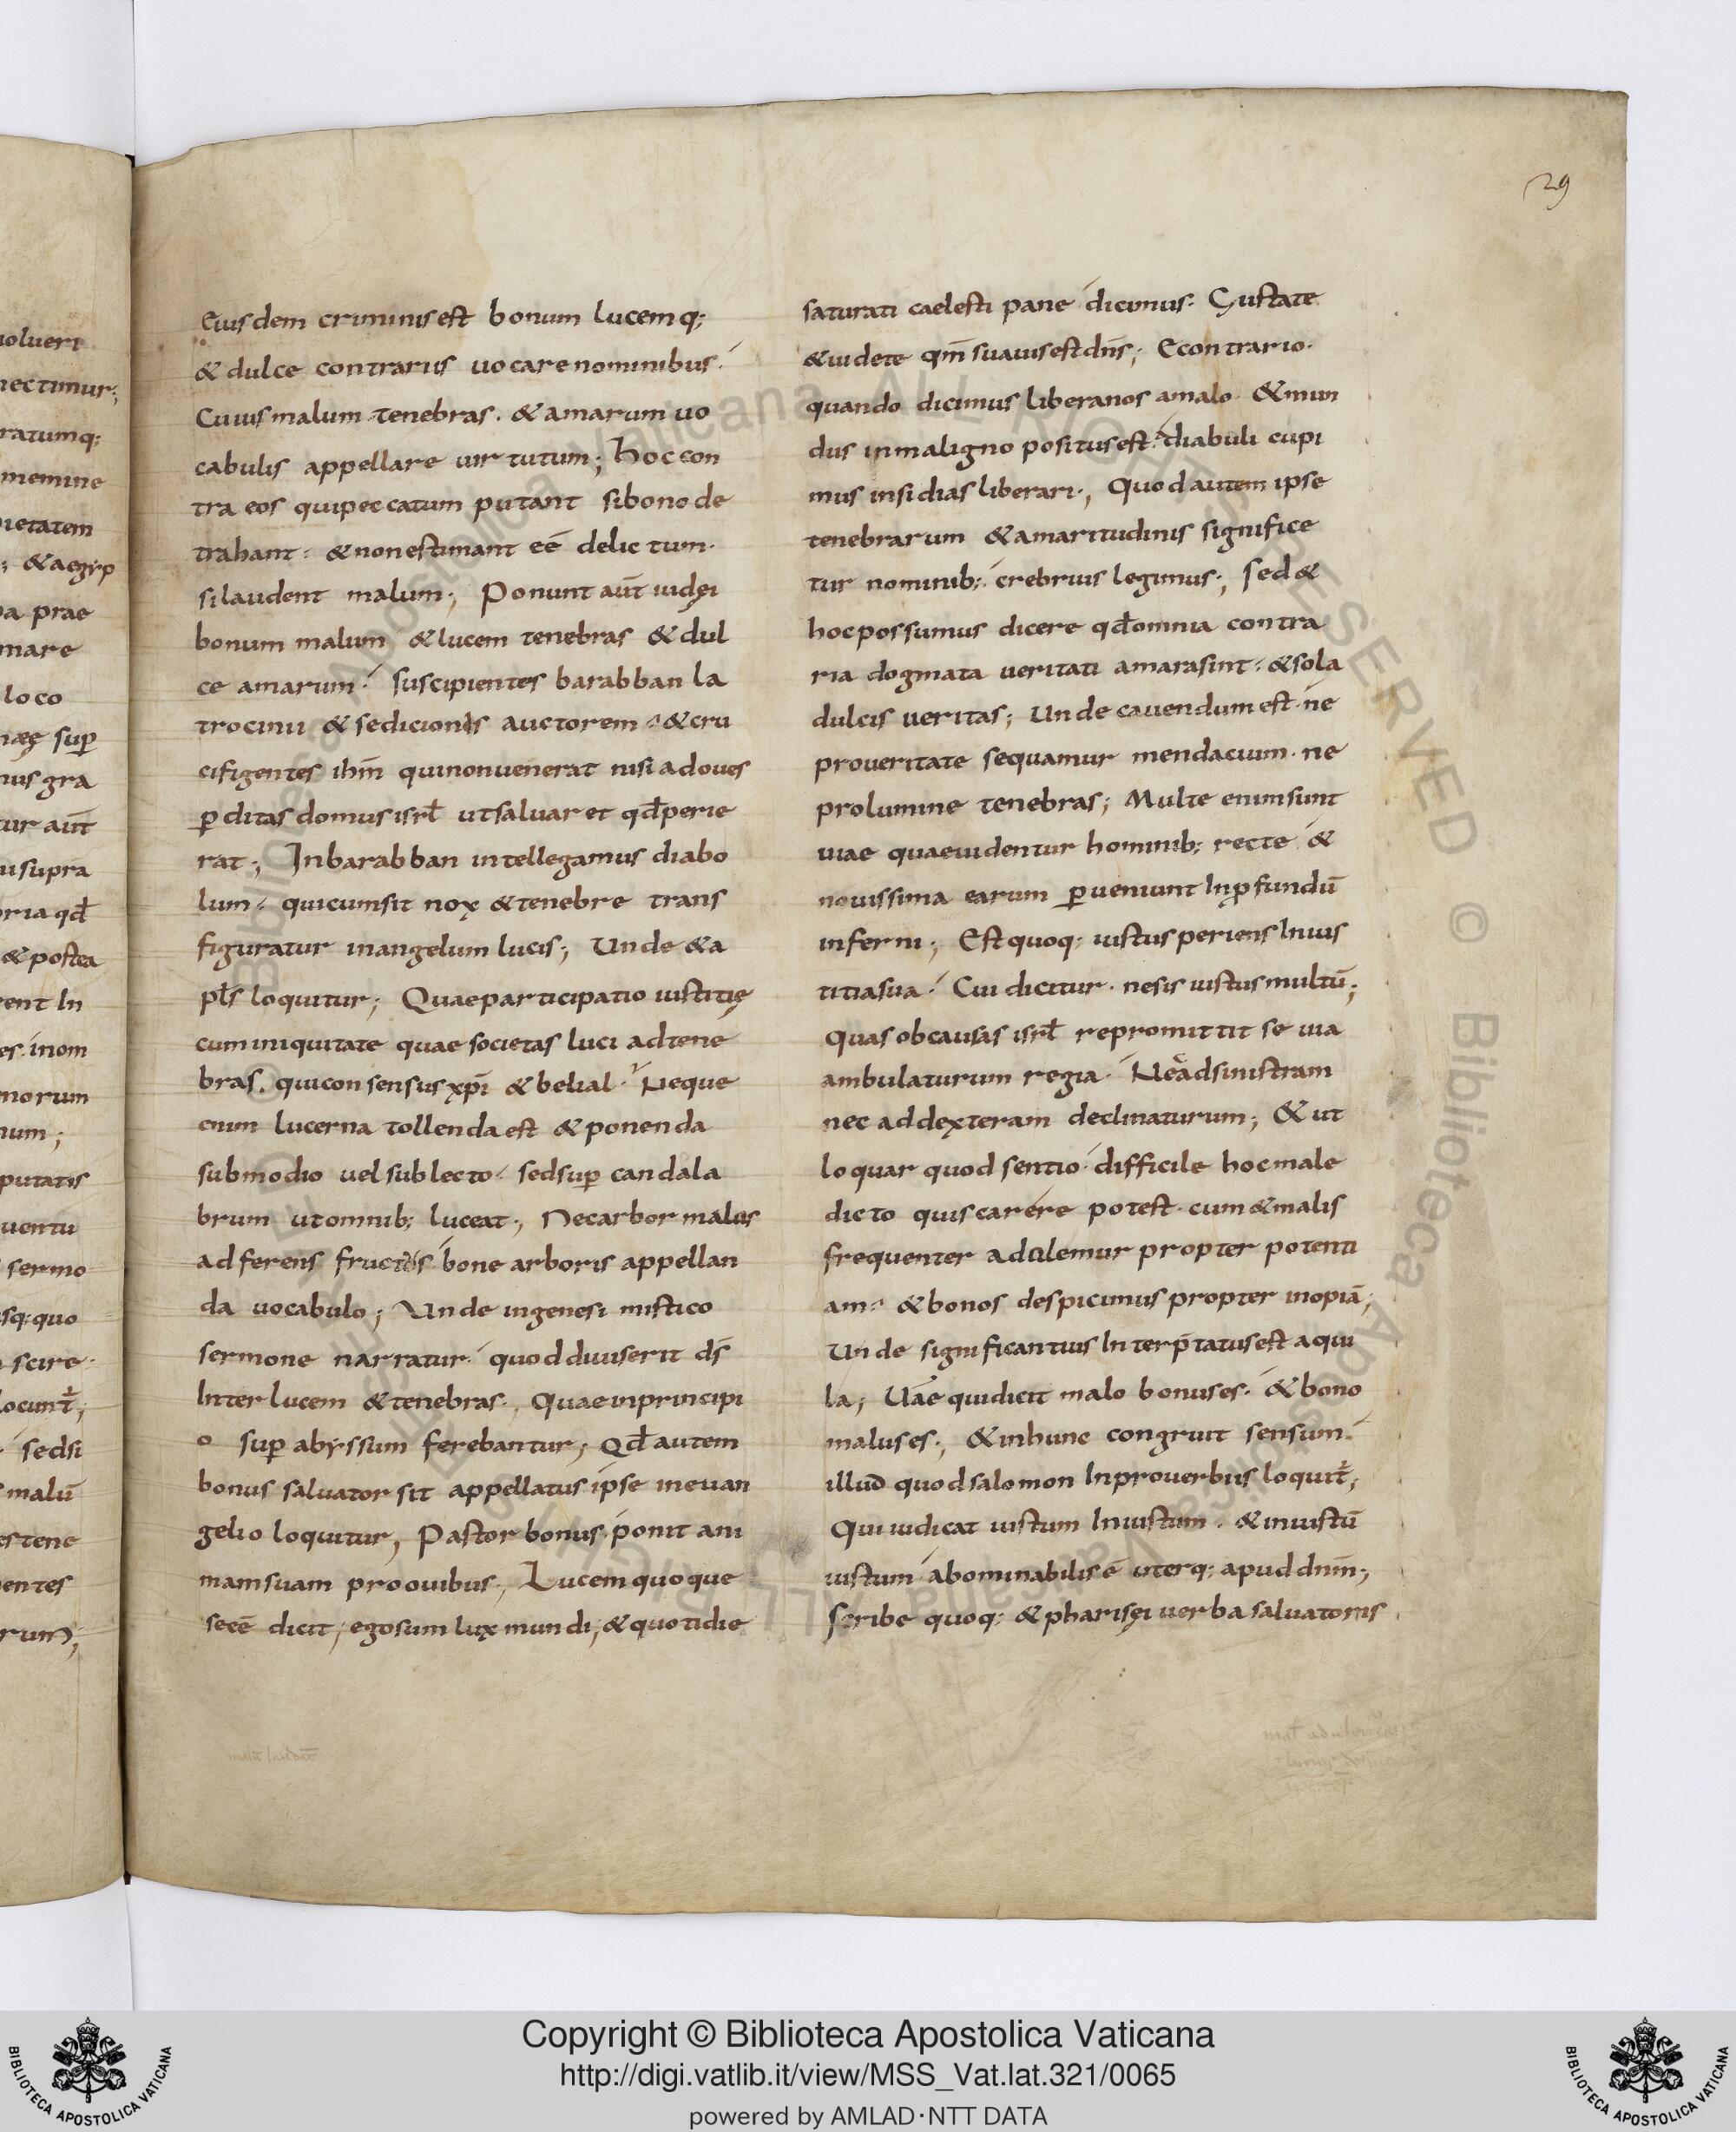 29
Eiusdem criminis est bonum lucemq;
& dulce contrariis uocare nominibus.
Cuius malum tenebras. & amarum uo
cabulis appellare uirtutum; Hoc con
tra eos qui peccatum putant si bono de
trahant. & non estimant eē delictum.
si laudent malum; Ponunt aūt iudęi
bonum malum & lucem tenebras & dul
ce amarum. suscipientes barabban la
trocinii & sedicionis auctorem. & cru
cifigentes ihm̄ qui non uenerat nisi ad oues
ꝑditas domus isrł ut saluaret qđ perie
rat; In barabban intellegamus diabo
lum. qui cum sit nox & tenebre trans
figuratur in angelum lucis; Unde & a
pls̄ loquitur; Quae participatio iustitię
cum iniquitate quae societas luci ad tene
bras. qui consensus xp̄i & belial. Neque
enim lucerna tollenda est & ponenda
sub modio uel sub lecto. sed suꝑ candala
brum ut omnib; luceat; Nec arbor malus
adferens fructus bone arboris appellan
da uocabulo; Unde in genesi mistico
sermone narratur quod diuiserit ds̄
Inter lucem & tenebras. Quae in principi
o suꝑ abyssum ferebantur; Qđ autem
bonus saluator sit appellatus ipse in euan
gelio loquitur, Pastor bonus ponit ani
mam suam pro ouibus; Lucem quoque
se eē dicit; ego sum lux mundi; & quotidie
saturati caelesti pane dicimus. Gustate
& uidete qm̄ suauis est dn̄s; E contrario.
quando dicimus libera nos a malo. & mun
dus in maligno positus est. diabuli cupi
mus insidias liberari; Quod autem ipse
tenebrarum & amaritudinis significe
tur nominib; crebrius legimus; sed &
hoc possumus dicere qđ omnia contra
ria dogmata ueritati amara sint. & sola
dulcis ueritas; Unde cauendum est. ne
pro ueritate sequamur mendacium. ne
pro lumine tenebras; Multe enim sunt
uiae quae uidentur hominib; recte &
nouissima earum ꝑueniunt In ꝓfundū
inferni; Est quoq; iustus periens In ius
titia sua. Cui dicitur. ne sis iustus multū;
Quas ob causas isrł repromittit se uia
ambulaturum regia. Nec ad sinistram
nec ad dexteram declinaturum; & ut
loquar quod sentio. difficile hoc male
dicto quis carere potest. cum & malis
frequenter adulemur propter potenti
am. & bonos despicimus propter inopiā;
Unde significantius Interp̄tatus est aqui
la; Uae qui dicit malo bonus es. & bono
malus es; & in hunc congruit sensum.
illud quod salomon In prouerbiis loquit̄;
Qui iudicat iustum Iniustum. & iniustū
iustum abominabilis ē uterq; apud dnm̄;
scribe quoq; & pharisęi uerba saluatoris
nectimur;
ratumq;
nemine
ietatem
; & aegyp
a prae
mare
loco
suꝑ
nus gra
tur aūt
supra
ria qđ
& postea
rent In
es. inom
norum
num;
putatis
uentu
sermo
sq; quo
scire.
locunt̄;
sed si
malū
es tene
entes
rum;
Copyright © Biblioteca Apostolica Vaticana
http://digi.vatlib.it/view/MSS_Vat.lat.321/0065
powered by AMLAD·NTT DATA
BIBLIOTECA APOSTOLICA VATICANA
BIBLIOTECA APOSTOLICA VATICANA